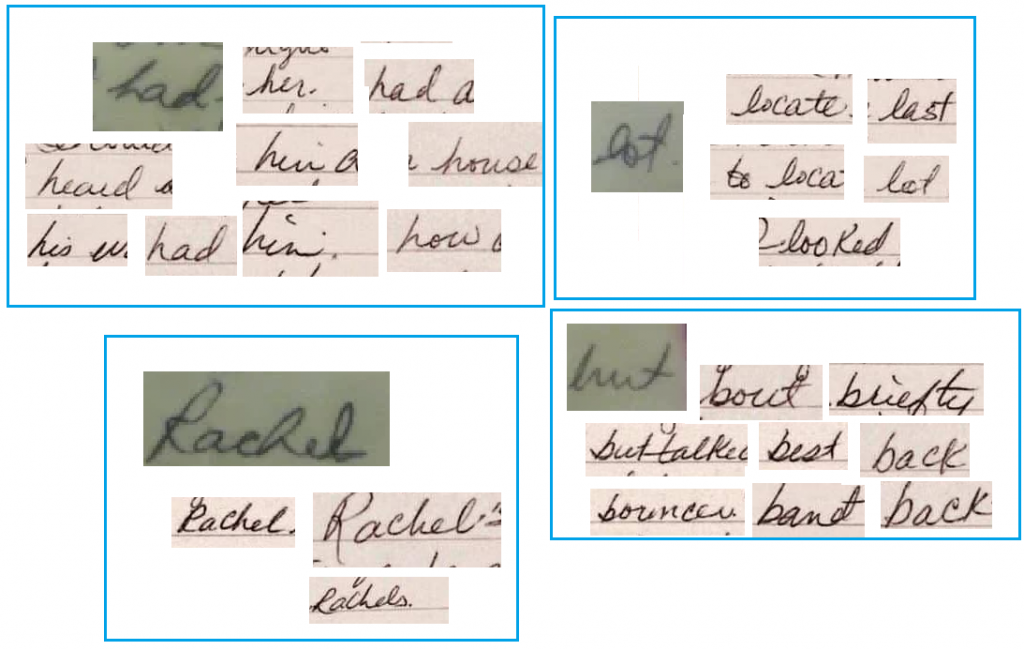 had
her.
had a
heard a
him a
a house
his w
had
him.
how a
lot.
locate.
last
to loca
lot
looked
Rachel
Rachel.
Rachel's
Rachels.
but
bout
briefly
but talked
best
back
bounced
band
back